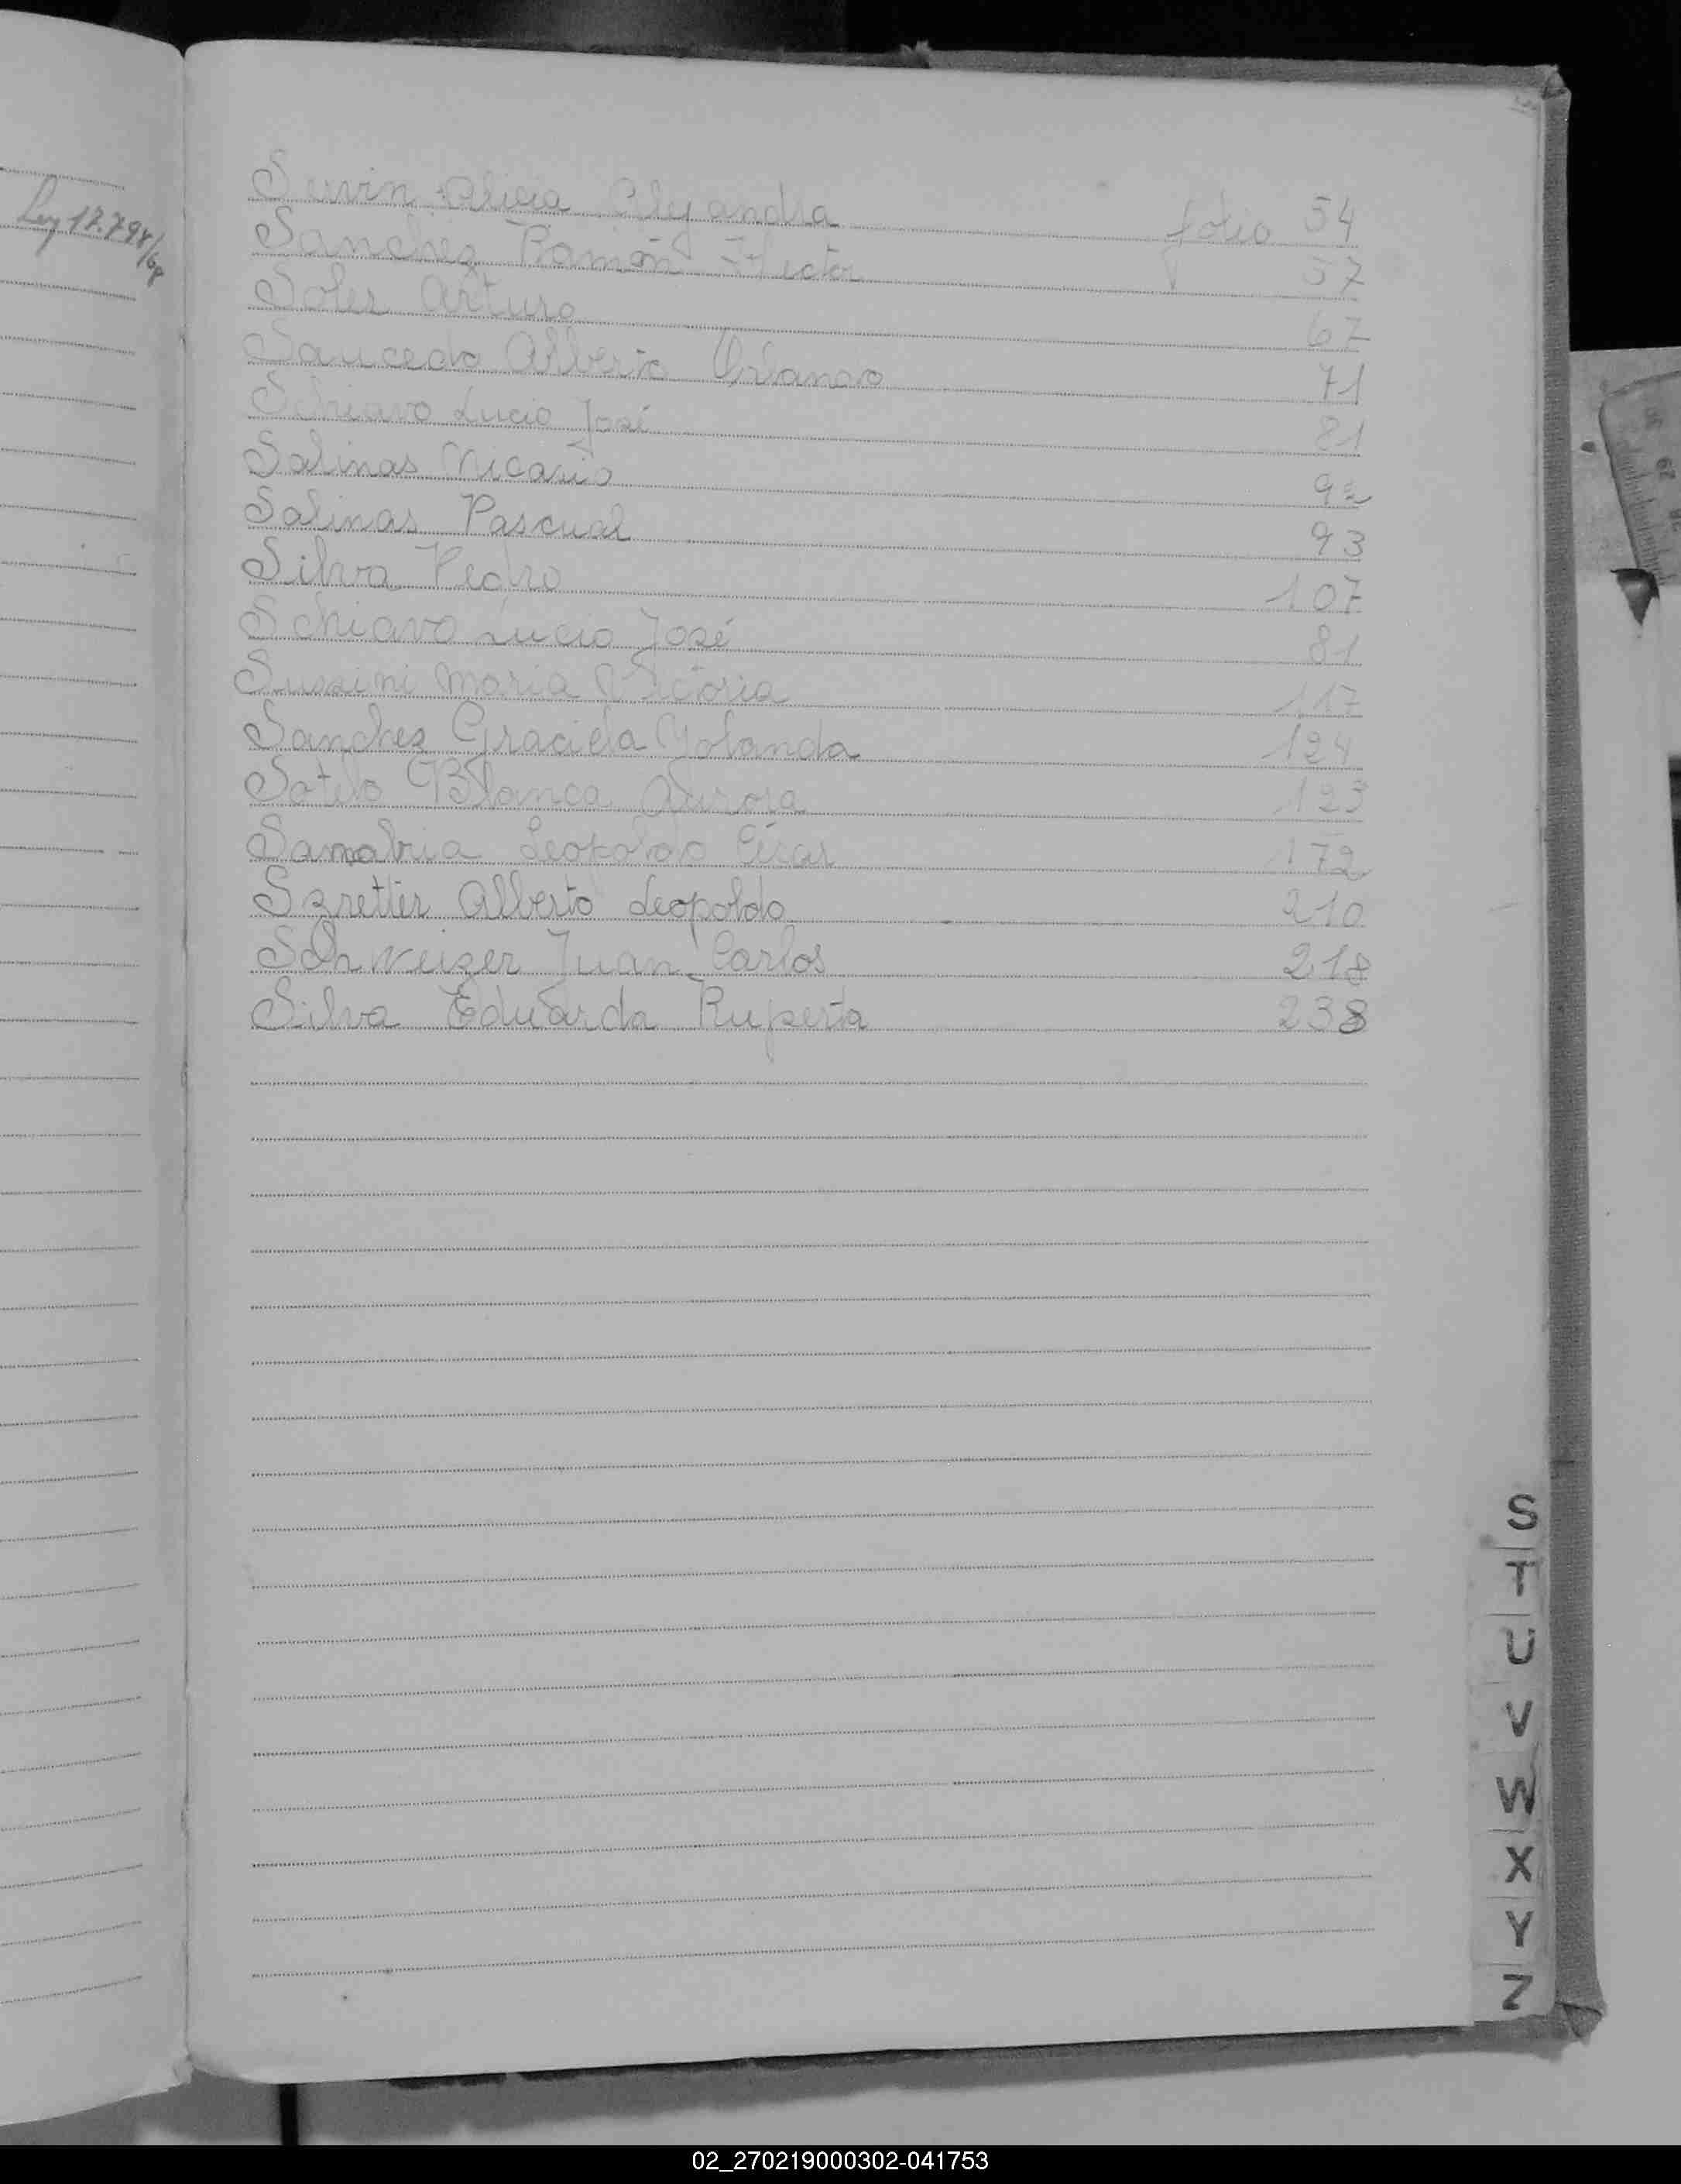 Ley 17.798/68
Servin Alicia Alejandra folio 54
Sanchez Ramón Hector 57
Soler Arturo 67
Saucedo Alberto Orlando 71
Schiavo Lucio José 81
Salinas Nicasio 92
Salinas Pascual 93
Silva Pedro 107
Schiavo Lucio José 81
Sussini Maria Victoria 117
Sanchez Graciela Yolanda 124
Sotelo Blanca Aurora 123
Sanabria Leopoldo César 172
Szretter Alberto Leopoldo 210
Schweizer Juan Carlos 218
Silva Eduarda Ruperta 238
S
T
U
V
W
X
Y
Z
02_270219000302-041753